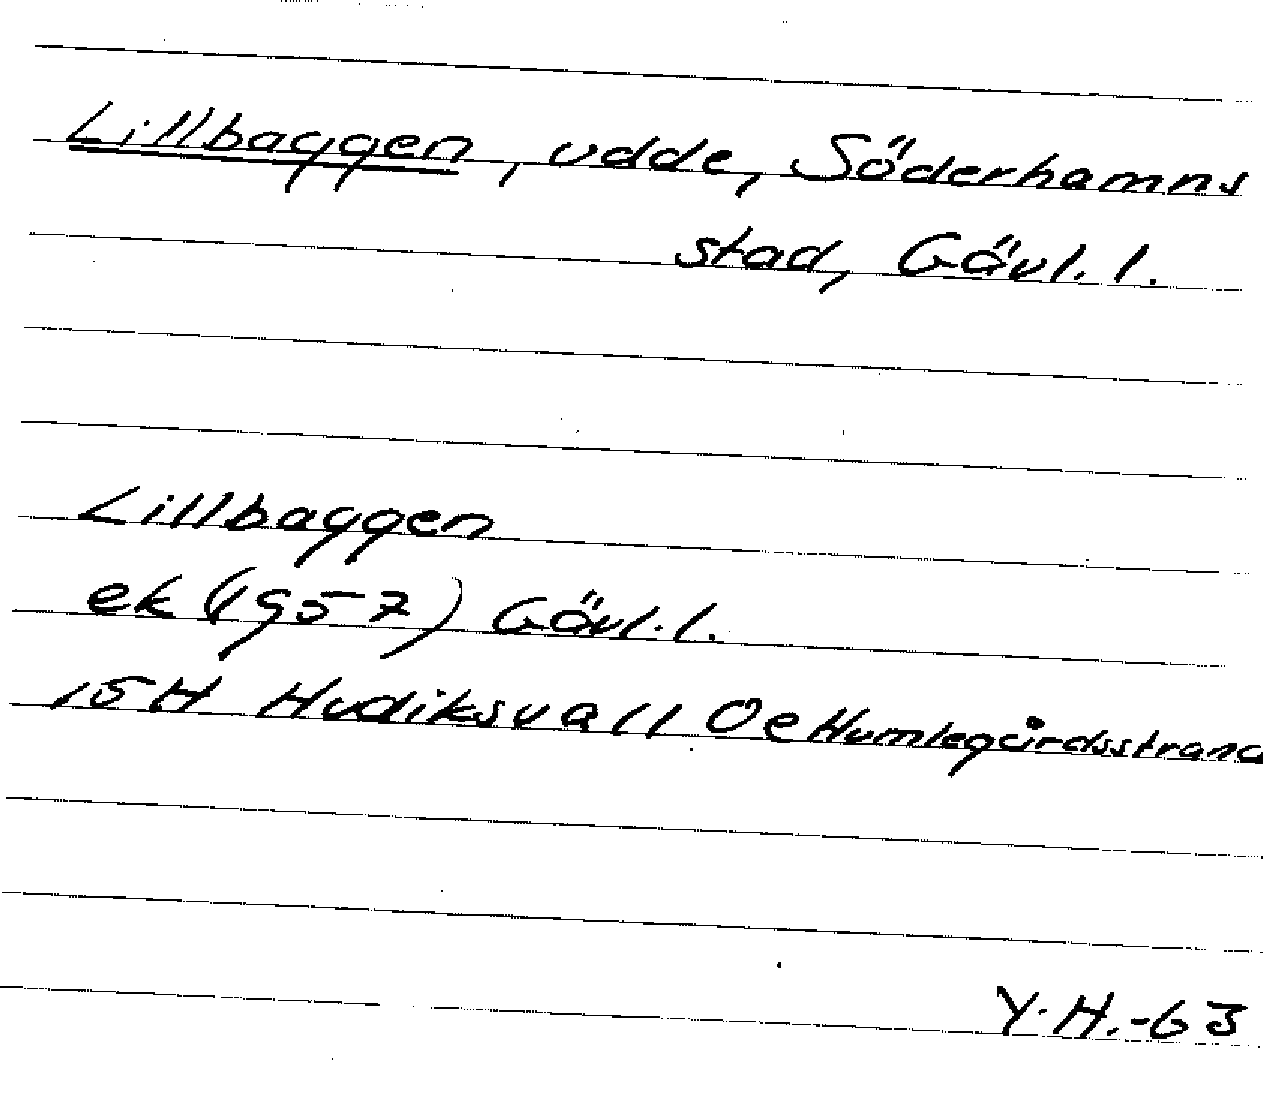 Lillbaggen, udde, Söderhamns
stad, Gävl. l.
Lillbaggen
ek (1957) Gävl. l.
15H Hudiksvall Oe Humlegårdsstrand
Y.H.-63